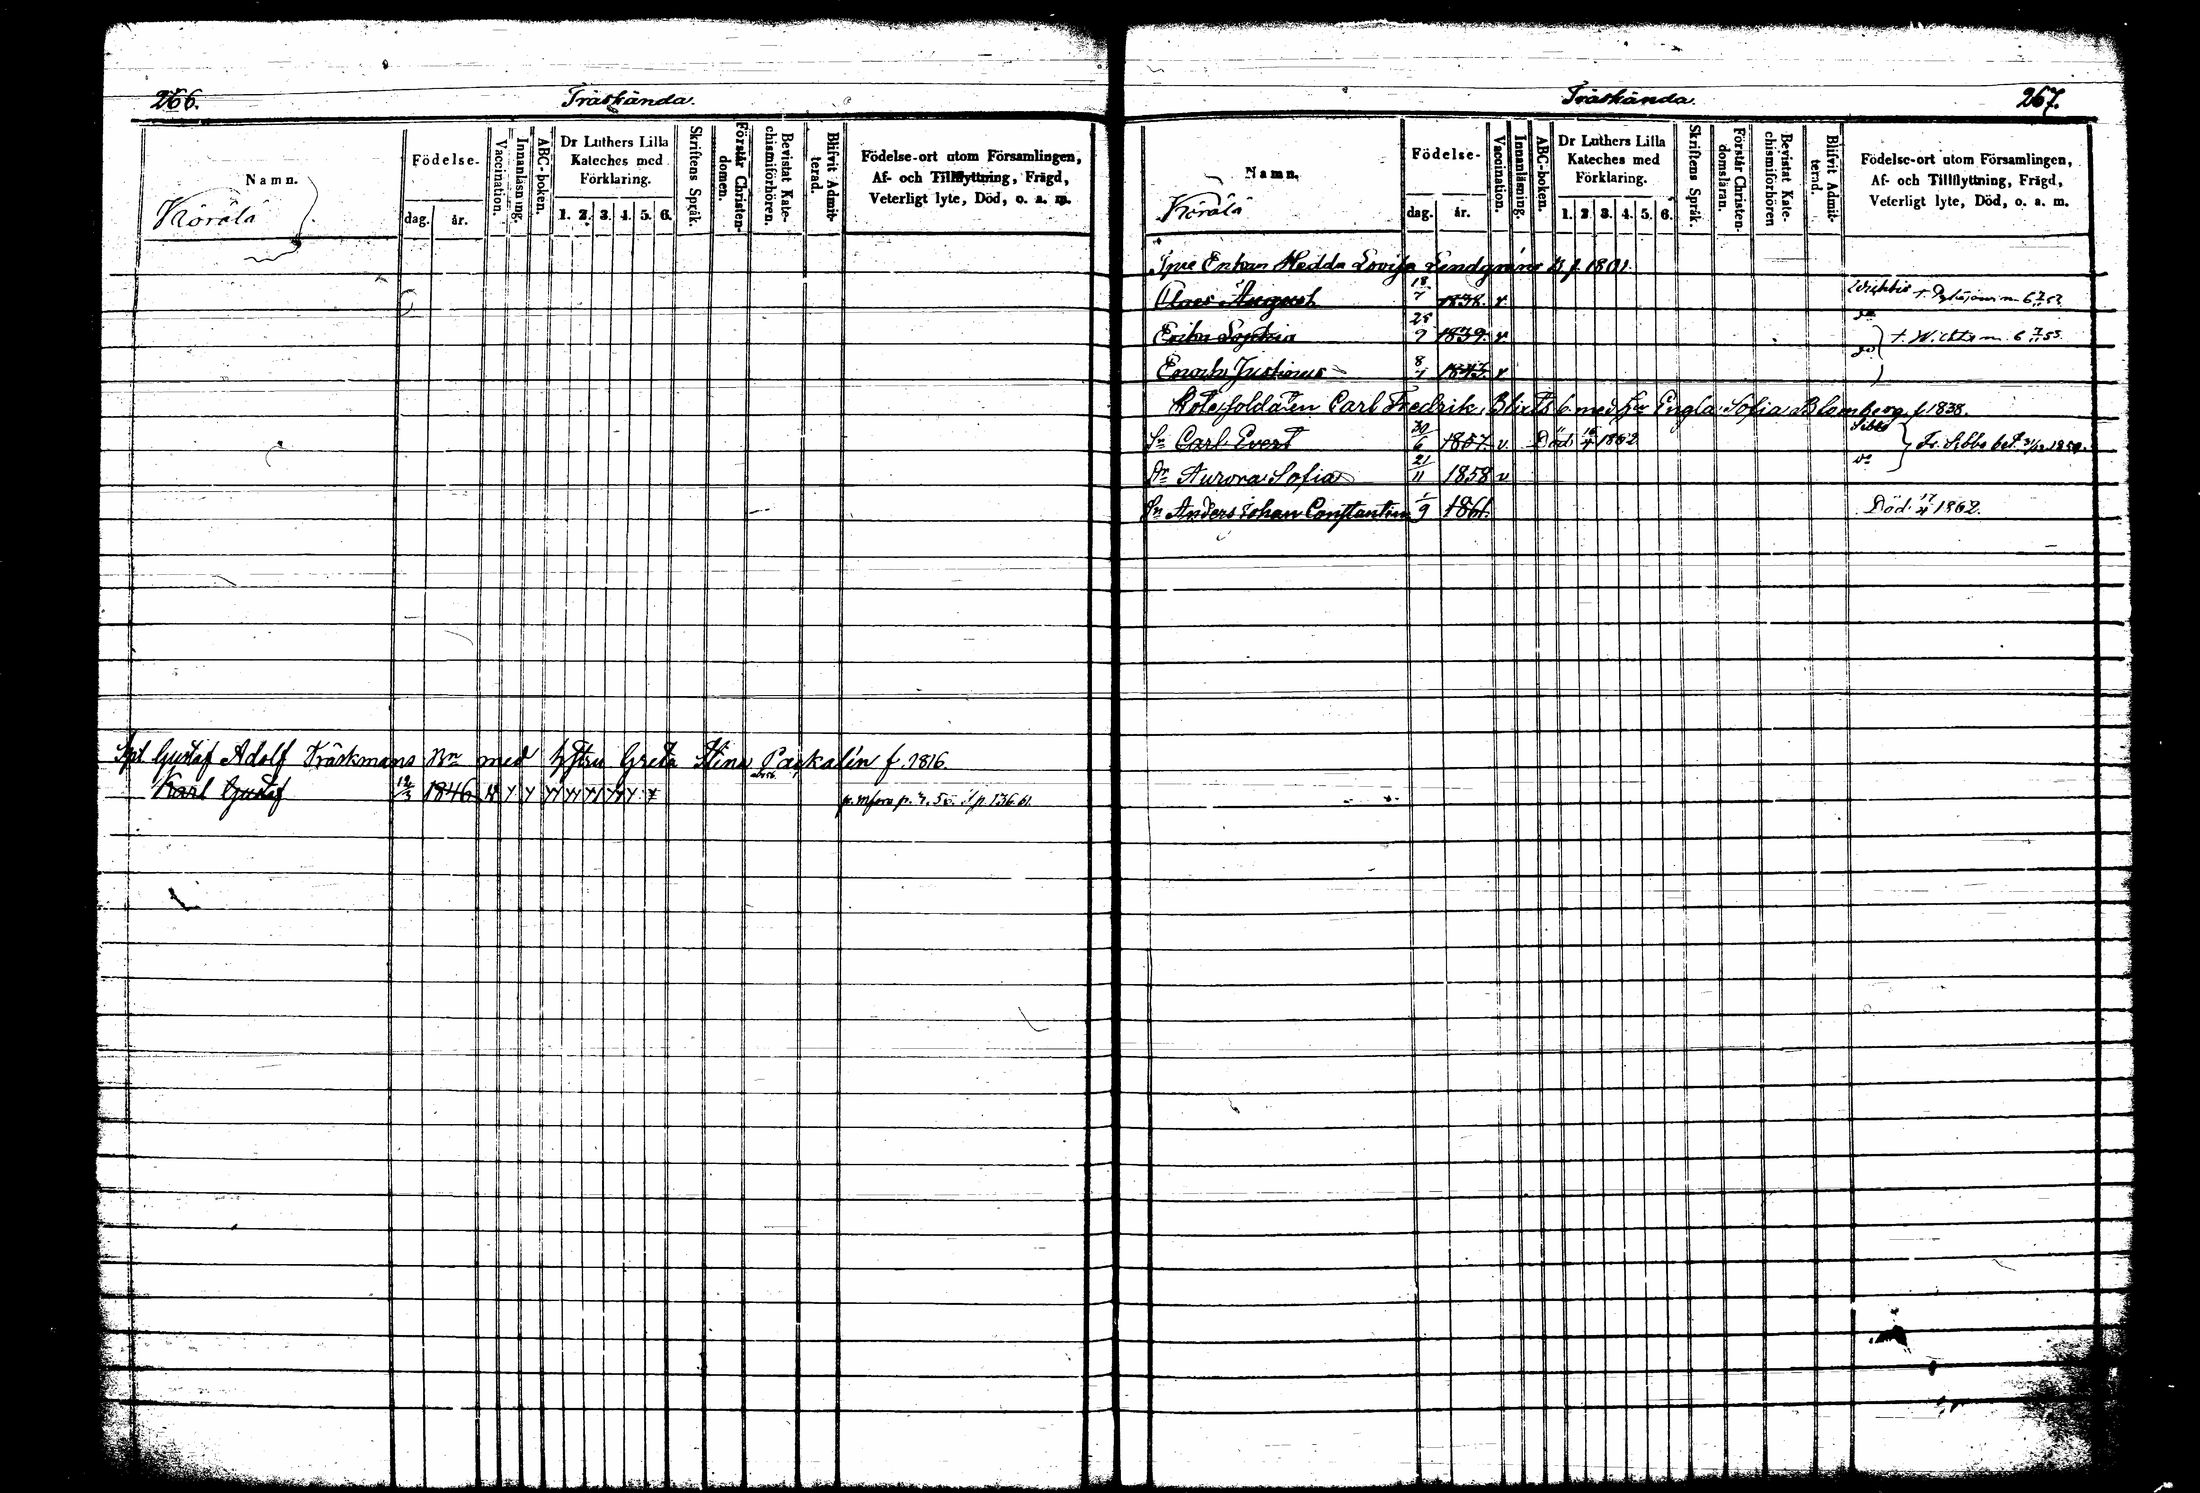 266.
Träskända.
Namn.
Födelse-
dag.
år.
Vaccination.
Innanläsning.
ABC-boken.
Dr Luthers Lilla
Kateches med
Förklaring.
1. 2. 3. 4. 5. 6.
Skriftens Språk.
Förstår Christen-
domen.
Bevistat Kate-
chismiförhören.
Blifvit Admit-
terad.
Födelse-ort utom Församlingen,
Af- och Tillflyttning, Frägd,
Veterligt lyte, Död, o. a. m.
Körälä
Gustaf Adolf Träskmans Bn med hustru Greta Stina f. 1816.
Karl Gustaf 12/3 1846
Träskända.
267.
Namn.
Födelse-
dag.
år.
Vaccination.
Innanläsning.
ABC-boken.
Dr Luthers Lilla
Kateches med
Förklaring.
1. 2. 3. 4. 5. 6.
Skriftens Språk.
Förstår Christen-
domsläran.
Bevistat Kate-
chismiförhören
Blifvit Admit-
terad.
Födelse-ort utom Församlingen,
Af- och Tillflyttning, Frägd,
Veterligt lyte, Död, o. a. m.
Körälä
Enkan Hedda Lovisa Lindgréns B. f. 1801.
Claes August 18/7 1838. v
Erika Sophia 28/9 1839. v
Enoch Justinus 8/4 v
Rotesoldaten Carl Fredrik Blixts b. med h:u Engla Sofia Blomberg f. 1838.
Sn Carl Evert 30/6 1857. v. Död 16/4 1862 Sibbo Fr. Sibbo bet.
Dr Aurora Sofia 21/11 1858 v do
Sn Anders Johan Constantin 1/9 1861. Död 17/4 1862.